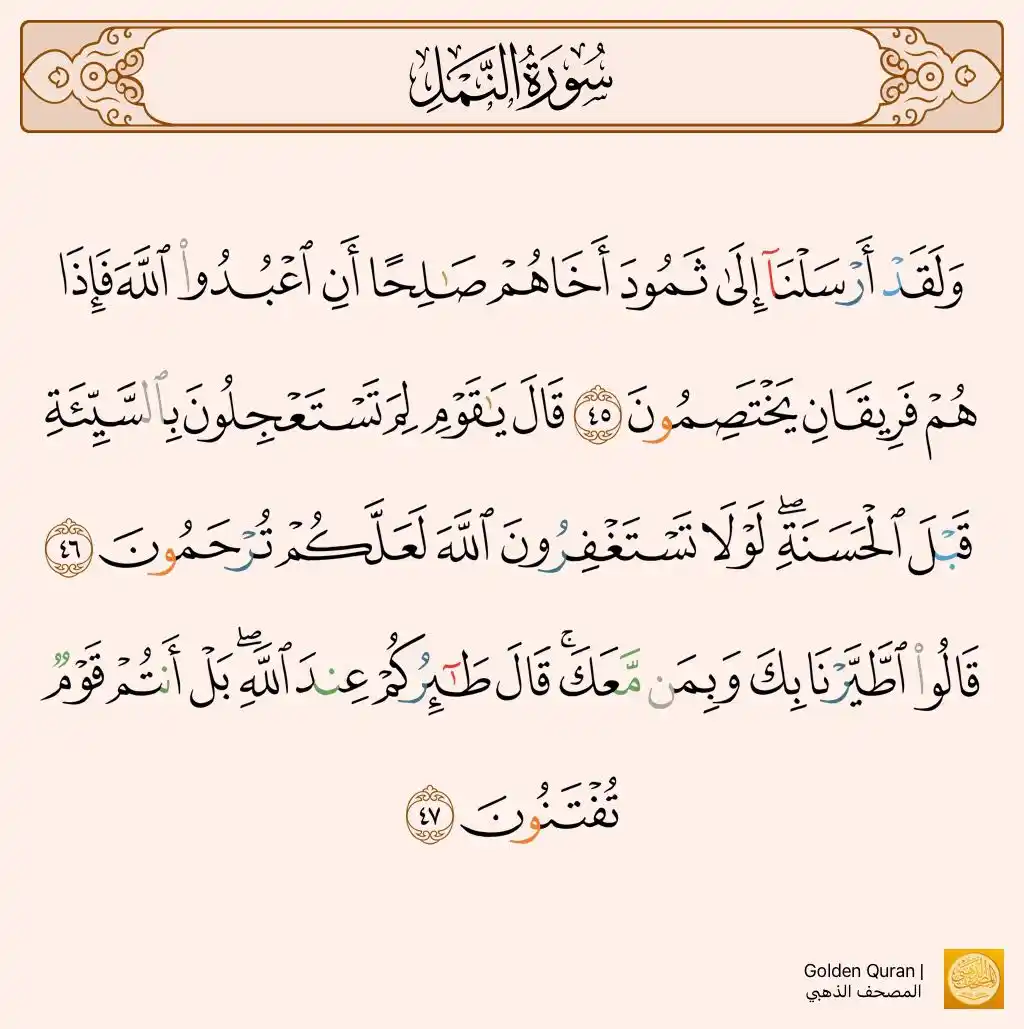 سُورَةُ النَّمْلِ
وَلَقَدْ أَرْسَلْنَآ إِلَىٰ ثَمُودَ أَخَاهُمْ صَـٰلِحًا أَنِ ٱعْبُدُوا۟ ٱللَّهَ فَإِذَا
هُمْ فَرِيقَانِ يَخْتَصِمُونَ ٤٥ قَالَ يَـٰقَوْمِ لِمَ تَسْتَعْجِلُونَ بِٱلسَّيِّئَةِ
قَبْلَ ٱلْحَسَنَةِ ۖ لَوْلَا تَسْتَغْفِرُونَ ٱللَّهَ لَعَلَّكُمْ تُرْحَمُونَ ٤٦
قَالُوا۟ ٱطَّيَّرْنَا بِكَ وَبِمَن مَّعَكَ ۚ قَالَ طَـٰٓئِرُكُمْ عِندَ ٱللَّهِ ۖ بَلْ أَنتُمْ قَوْمٌ
تُفْتَنُونَ ٤٧
Golden Quran |
المصحف الذهبي